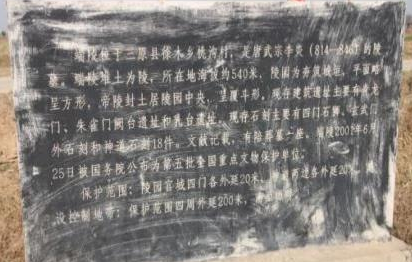 端陵位于三原县徐木乡桃沟村，是唐武宗李炎（814—846）的陵
墓。端陵堆土为陵，所在地海拔约540米，陵园为夯筑城垣，平面略
呈方形，帝陵封土居陵园中央，呈覆斗形，现存建筑遗址主要有 龙
门、朱雀门阙台遗址和乳台遗址。现存石刻主要有四门石狮、玄武门
外石刻和神道石刻18件。文献记载，有陪葬墓一座。 陵2001年6月
25日被国务院公布为第五批全国重点文物保护单位。
保护范围：陵园宫城四门各外延20米， 两边各外延20米， 建
设控制地带：保护范围四周外延200米，